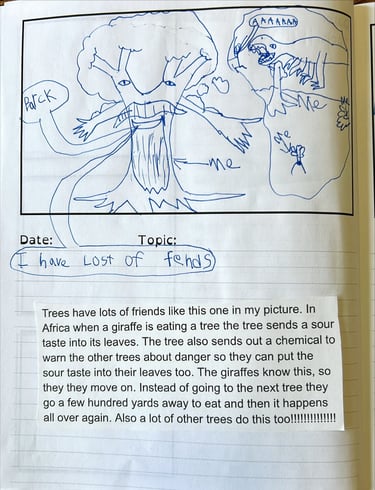 AAAAAAA
PaRcK
me
me
Date: Topic:
I have Lost of fends
Trees have lots of friends like this one in my picture. In
Africa when a giraffe is eating a tree the tree sends a sour
taste into its leaves. The tree also sends out a chemical to
warn the other trees about danger so they can put the
sour taste into their leaves too. The giraffes know this, so
they they move on. Instead of going to the next tree they
go a few hundred yards away to eat and then it happens
all over again. Also a lot of other trees do this too!!!!!!!!!!!!!!